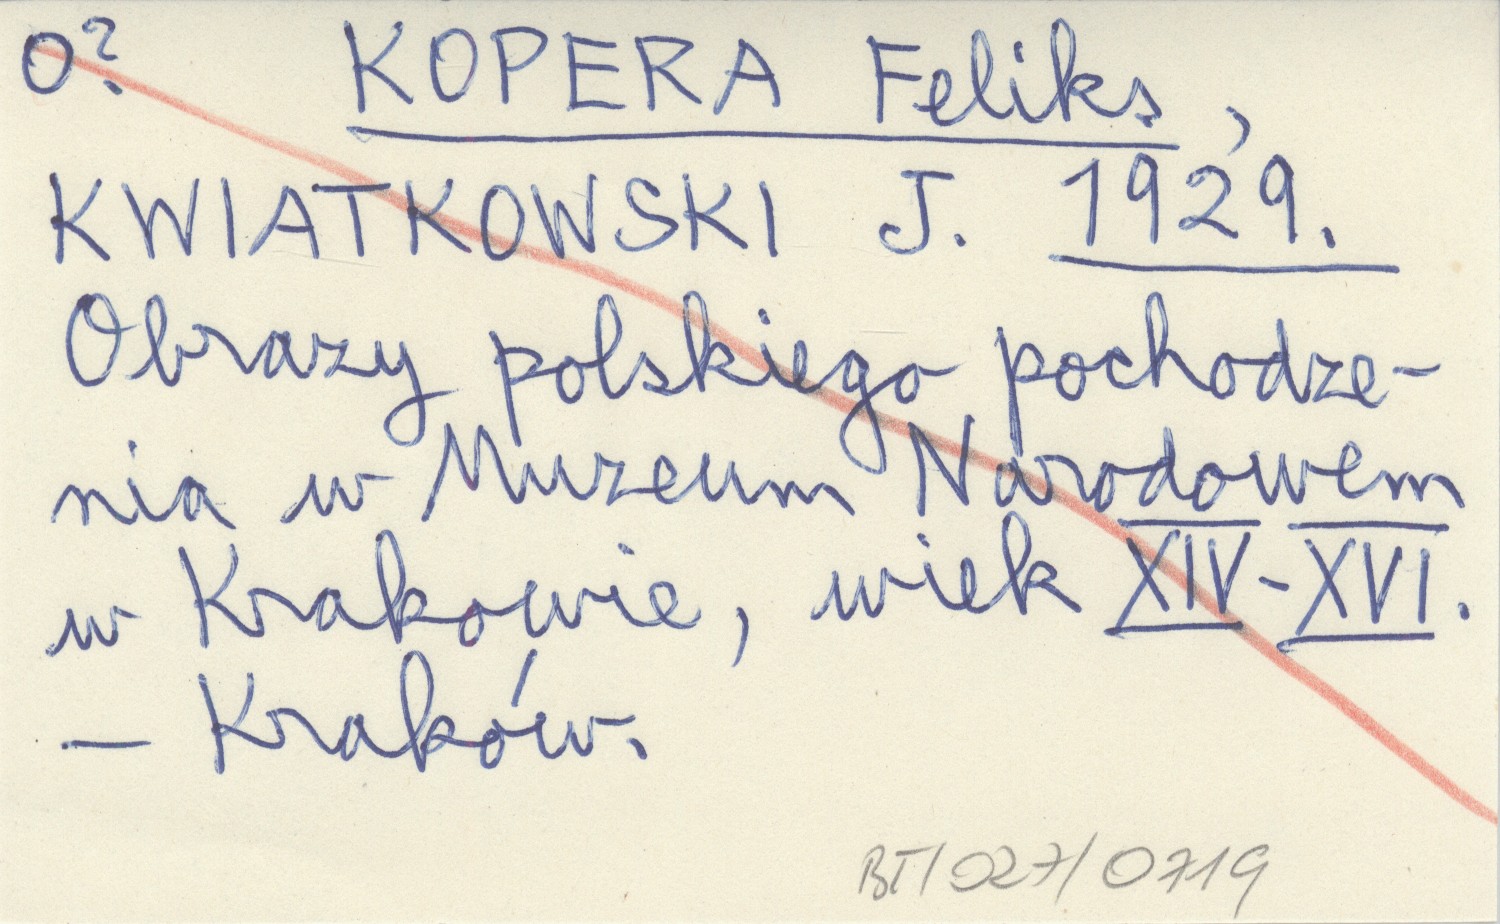 O? KOPERA Feliks,
KWIATKOWSKI J. 1929.
Obrazy polskiego pochodze-
nia w Muzeum Narodowem
w Krakowie, wiek XIV-XVI.
- Kraków.
BT/027/0719